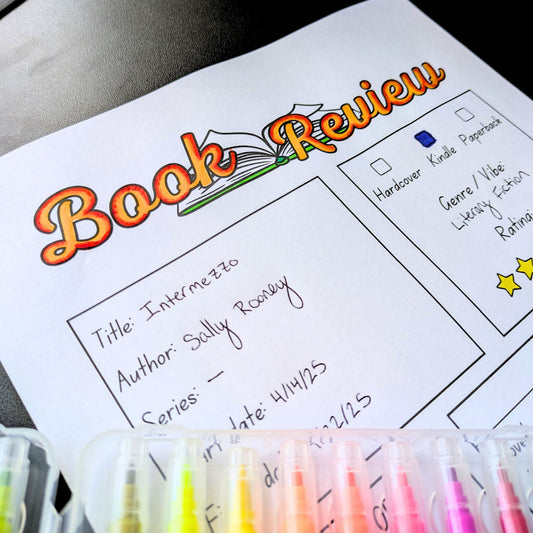 Book Review
Title: Intermezzo
Author: Sally Rooney
Series: —
date: 4/14/25
/22/25
Hardcover
Kindle
Paperback
Genre/Vibe:
Literary Fiction
Rating: